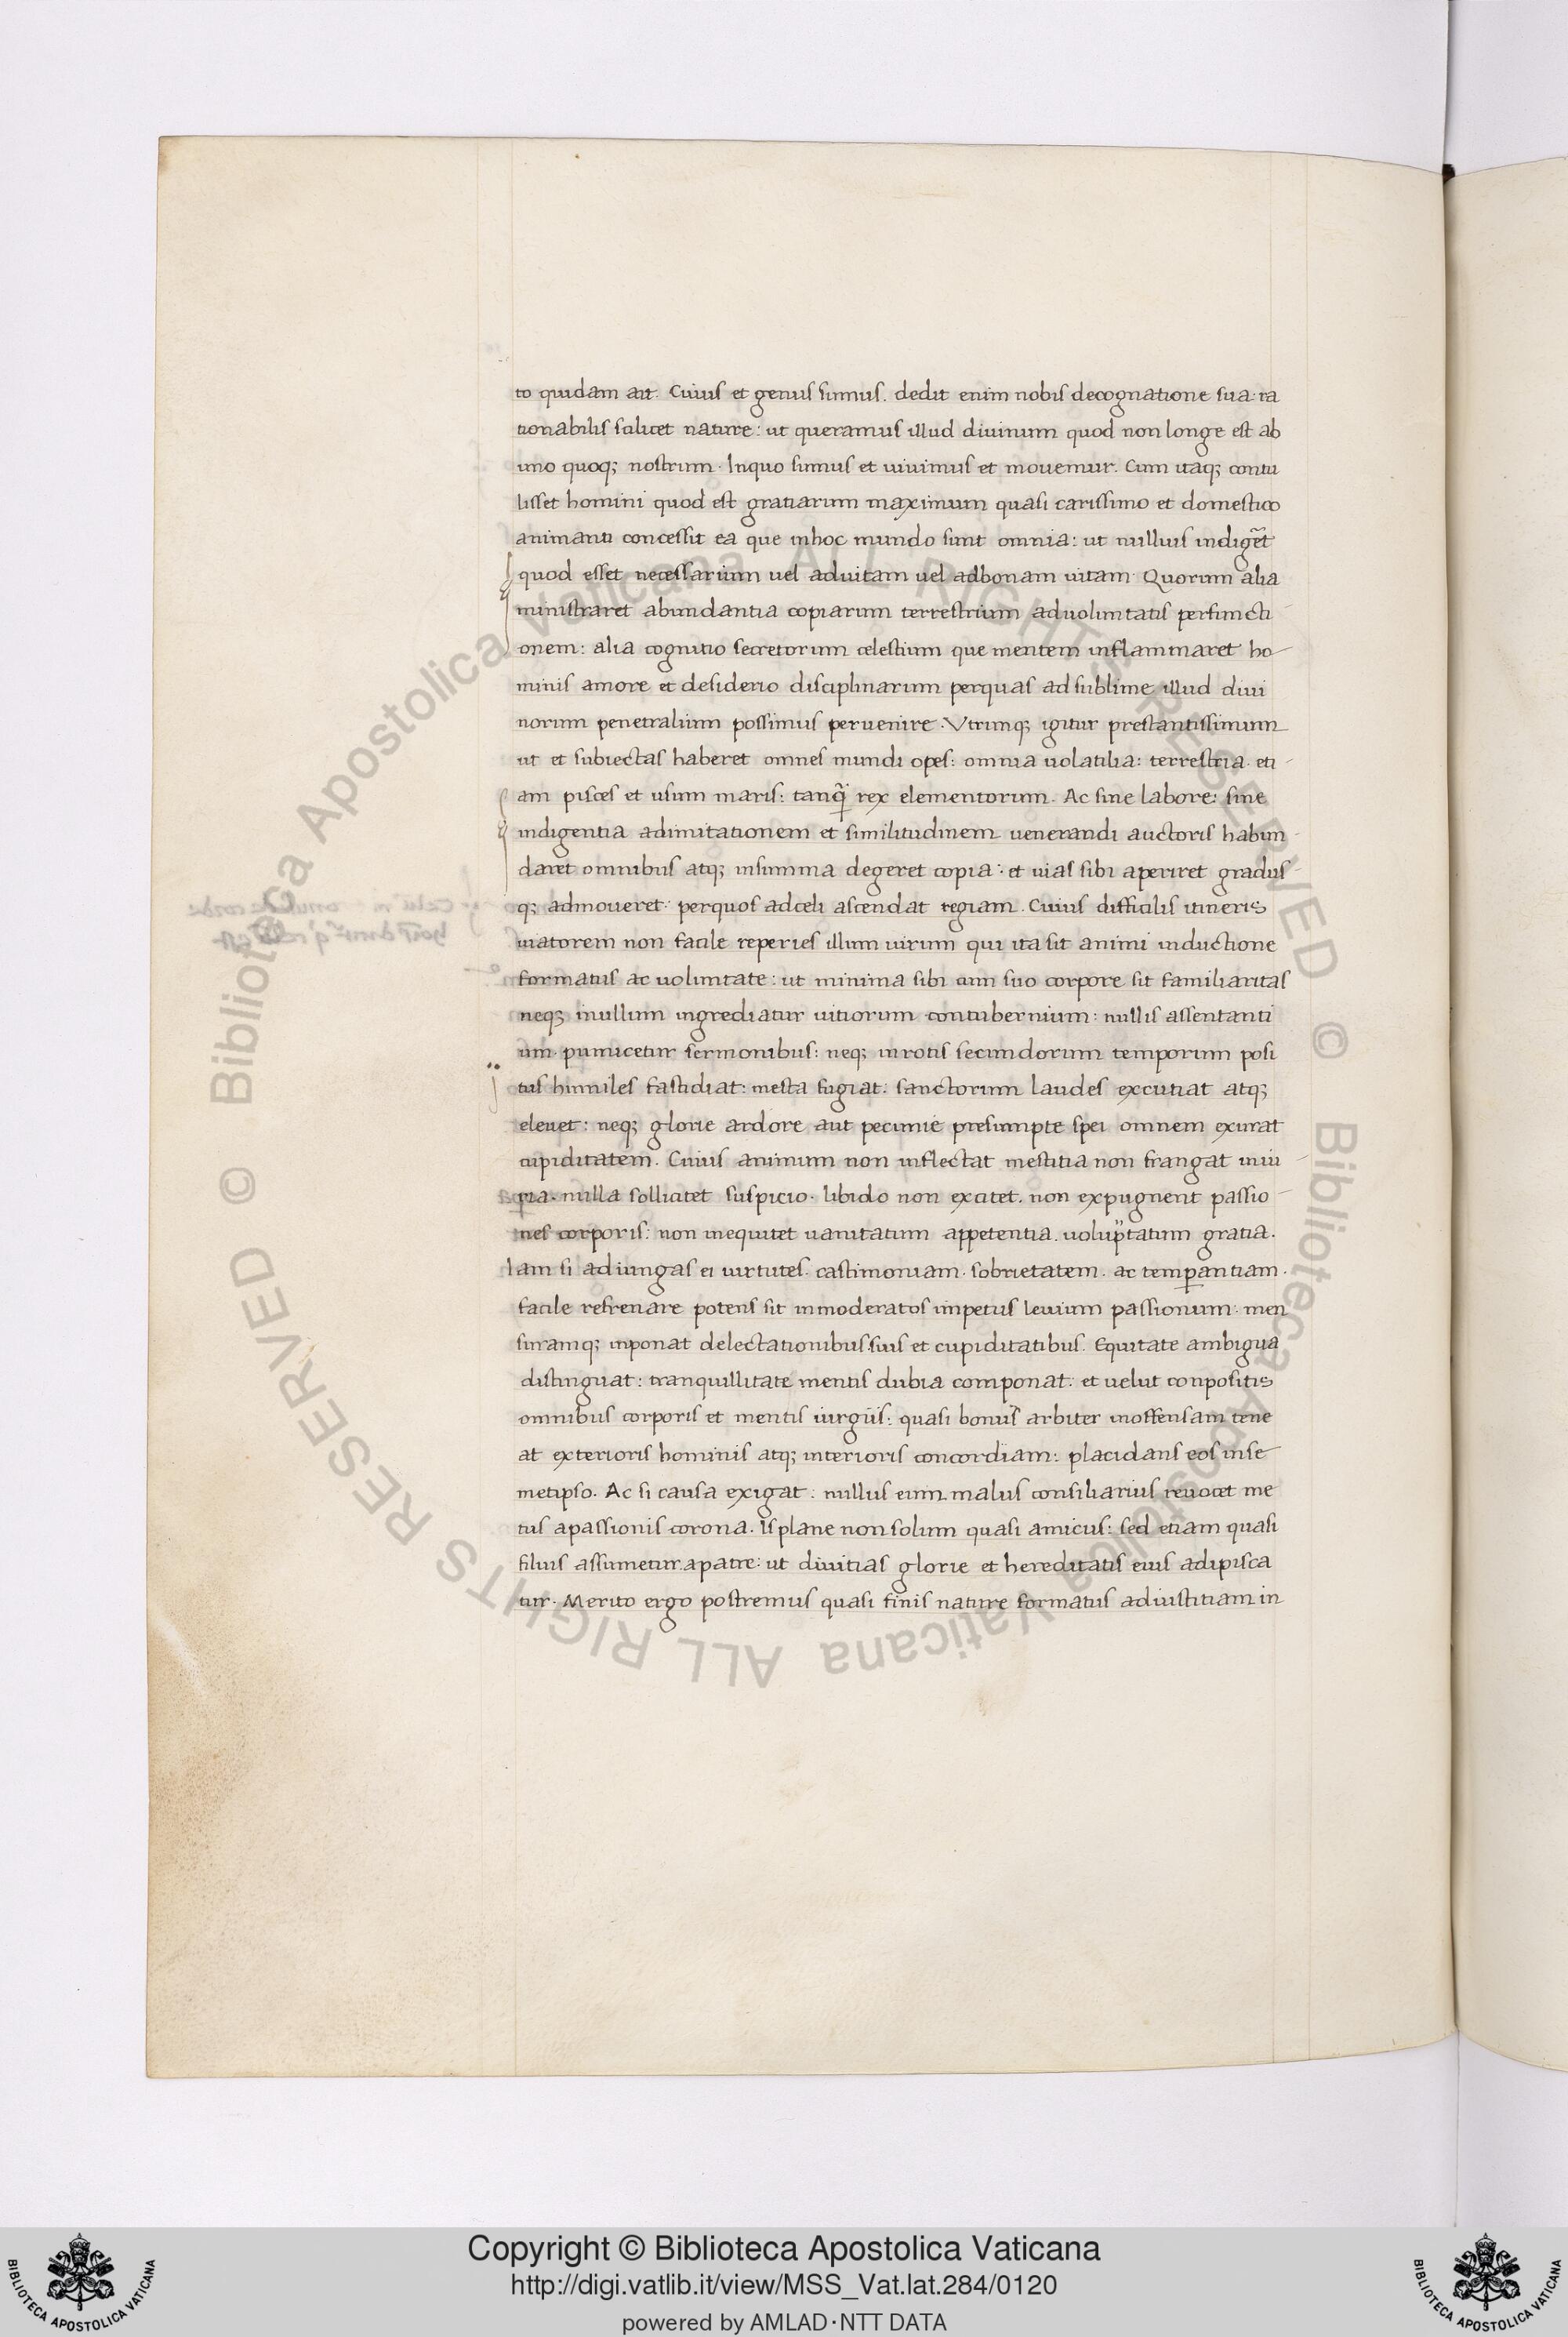 to quidam ait. Cuius et genus sumus. dedit enim nobis decognatione sua: ra
tionabilis scilicet nature: ut queramus illud diuinum quod non longe est ab
uno quoq; nostrum. Inquo sumus et uiuimus et mouemur. Cum itaq; contu
lisset homini quod est gratiarum maximum quasi carissimo et domestico
animanti concessit ea que inhoc mundo sunt omnia: ut nullius indigēt
quod esset necessarium uel aduitam uel adbonam uitam. Quorum alia
ministraret abundantia copiarum terrestrium aduoluntatis perfuncti
onem: alia cognitio secretorum celestium que mentem inflammaret ho-
minis amore et desiderio disciplinarum perquas ad sublime illud diui
norum penetralium possimus peruenire. Vtrunq; igitur prestantissimum
ut et subiectas haberet omnes mundi opes: omnia uolatilia: terrestria. eti-
am pisces et usum maris: tanq̃ rex elementorum. Ac sine labore: sine
indigentia adimitationem et similitudinem uenerandi auctoris habun-
daret omnibus atq; insumma degeret copia: et uias sibi aperiret gradus-
q; admoueret: perquos adceli ascendat regiam. Cuius difficilis itineris
uiatorem non facile reperies illum uirum qui ita sit animi inductione
formatus ac uoluntate: ut minima sibi cum suo corpore sit familiaritas
neq; inullum ingrediatur uitiorum contubernium: nullis assentanti
um. pumicetur sermonibus: neq; inrotis secundorum temporum posi
tus humiles fastidiat: mesta fugiat. sanctorum laudes excutiat atq;
eleuet: neq; glorie ardore aut pecunie presumpte spei omnem exurat
cupiditatem. Cuius animum non inflectat mestitia non frangat iniu-
ria. nulla sollicitet suspicio. libido non excitet. non expugnent passio-
nes corporis: non inequitet uanitatum appetentia. uoluptatum gratia.
Iam si adiungas ei uirtutes. castimoniam. sobrietatem. ac temꝑantiam.
facile refrenare potens sit inmoderatos impetus leuium passionum. men
suramq; inponat delectationibus suis et cupiditatibus. Equitate ambigua
distinguat: tranquillitate mentis dubia componat: et uelut conpositis
omnibus corporis et mentis iurgiis: quasi bonus arbiter inoffensam tene
at exterioris hominis atq; interioris concordiam: placidans eos inse
metipso. Ac si causa exigat: nullus eum malus consiliarius reuocet me
tus apassionis corona. Is plane non solum quasi amicus: sed etiam quasi
filius assumetur apatre: ut diuitias glorie et hereditatis eius adipisca
tur. Merito ergo postremus quasi finis nature formatus adiustitiam in
Biblioteca Apostolica Vaticana ALL RIGHTS RESERVED © Biblioteca Apostolica Vaticana ALL RIGHTS RESERVED ©
Copyright © Biblioteca Apostolica Vaticana
http://digi.vatlib.it/view/MSS_Vat.lat.284/0120
powered by AMLAD·NTT DATA
BIBLIOTECA APOSTOLICA VATICANA
BIBLIOTECA APOSTOLICA VATICANA